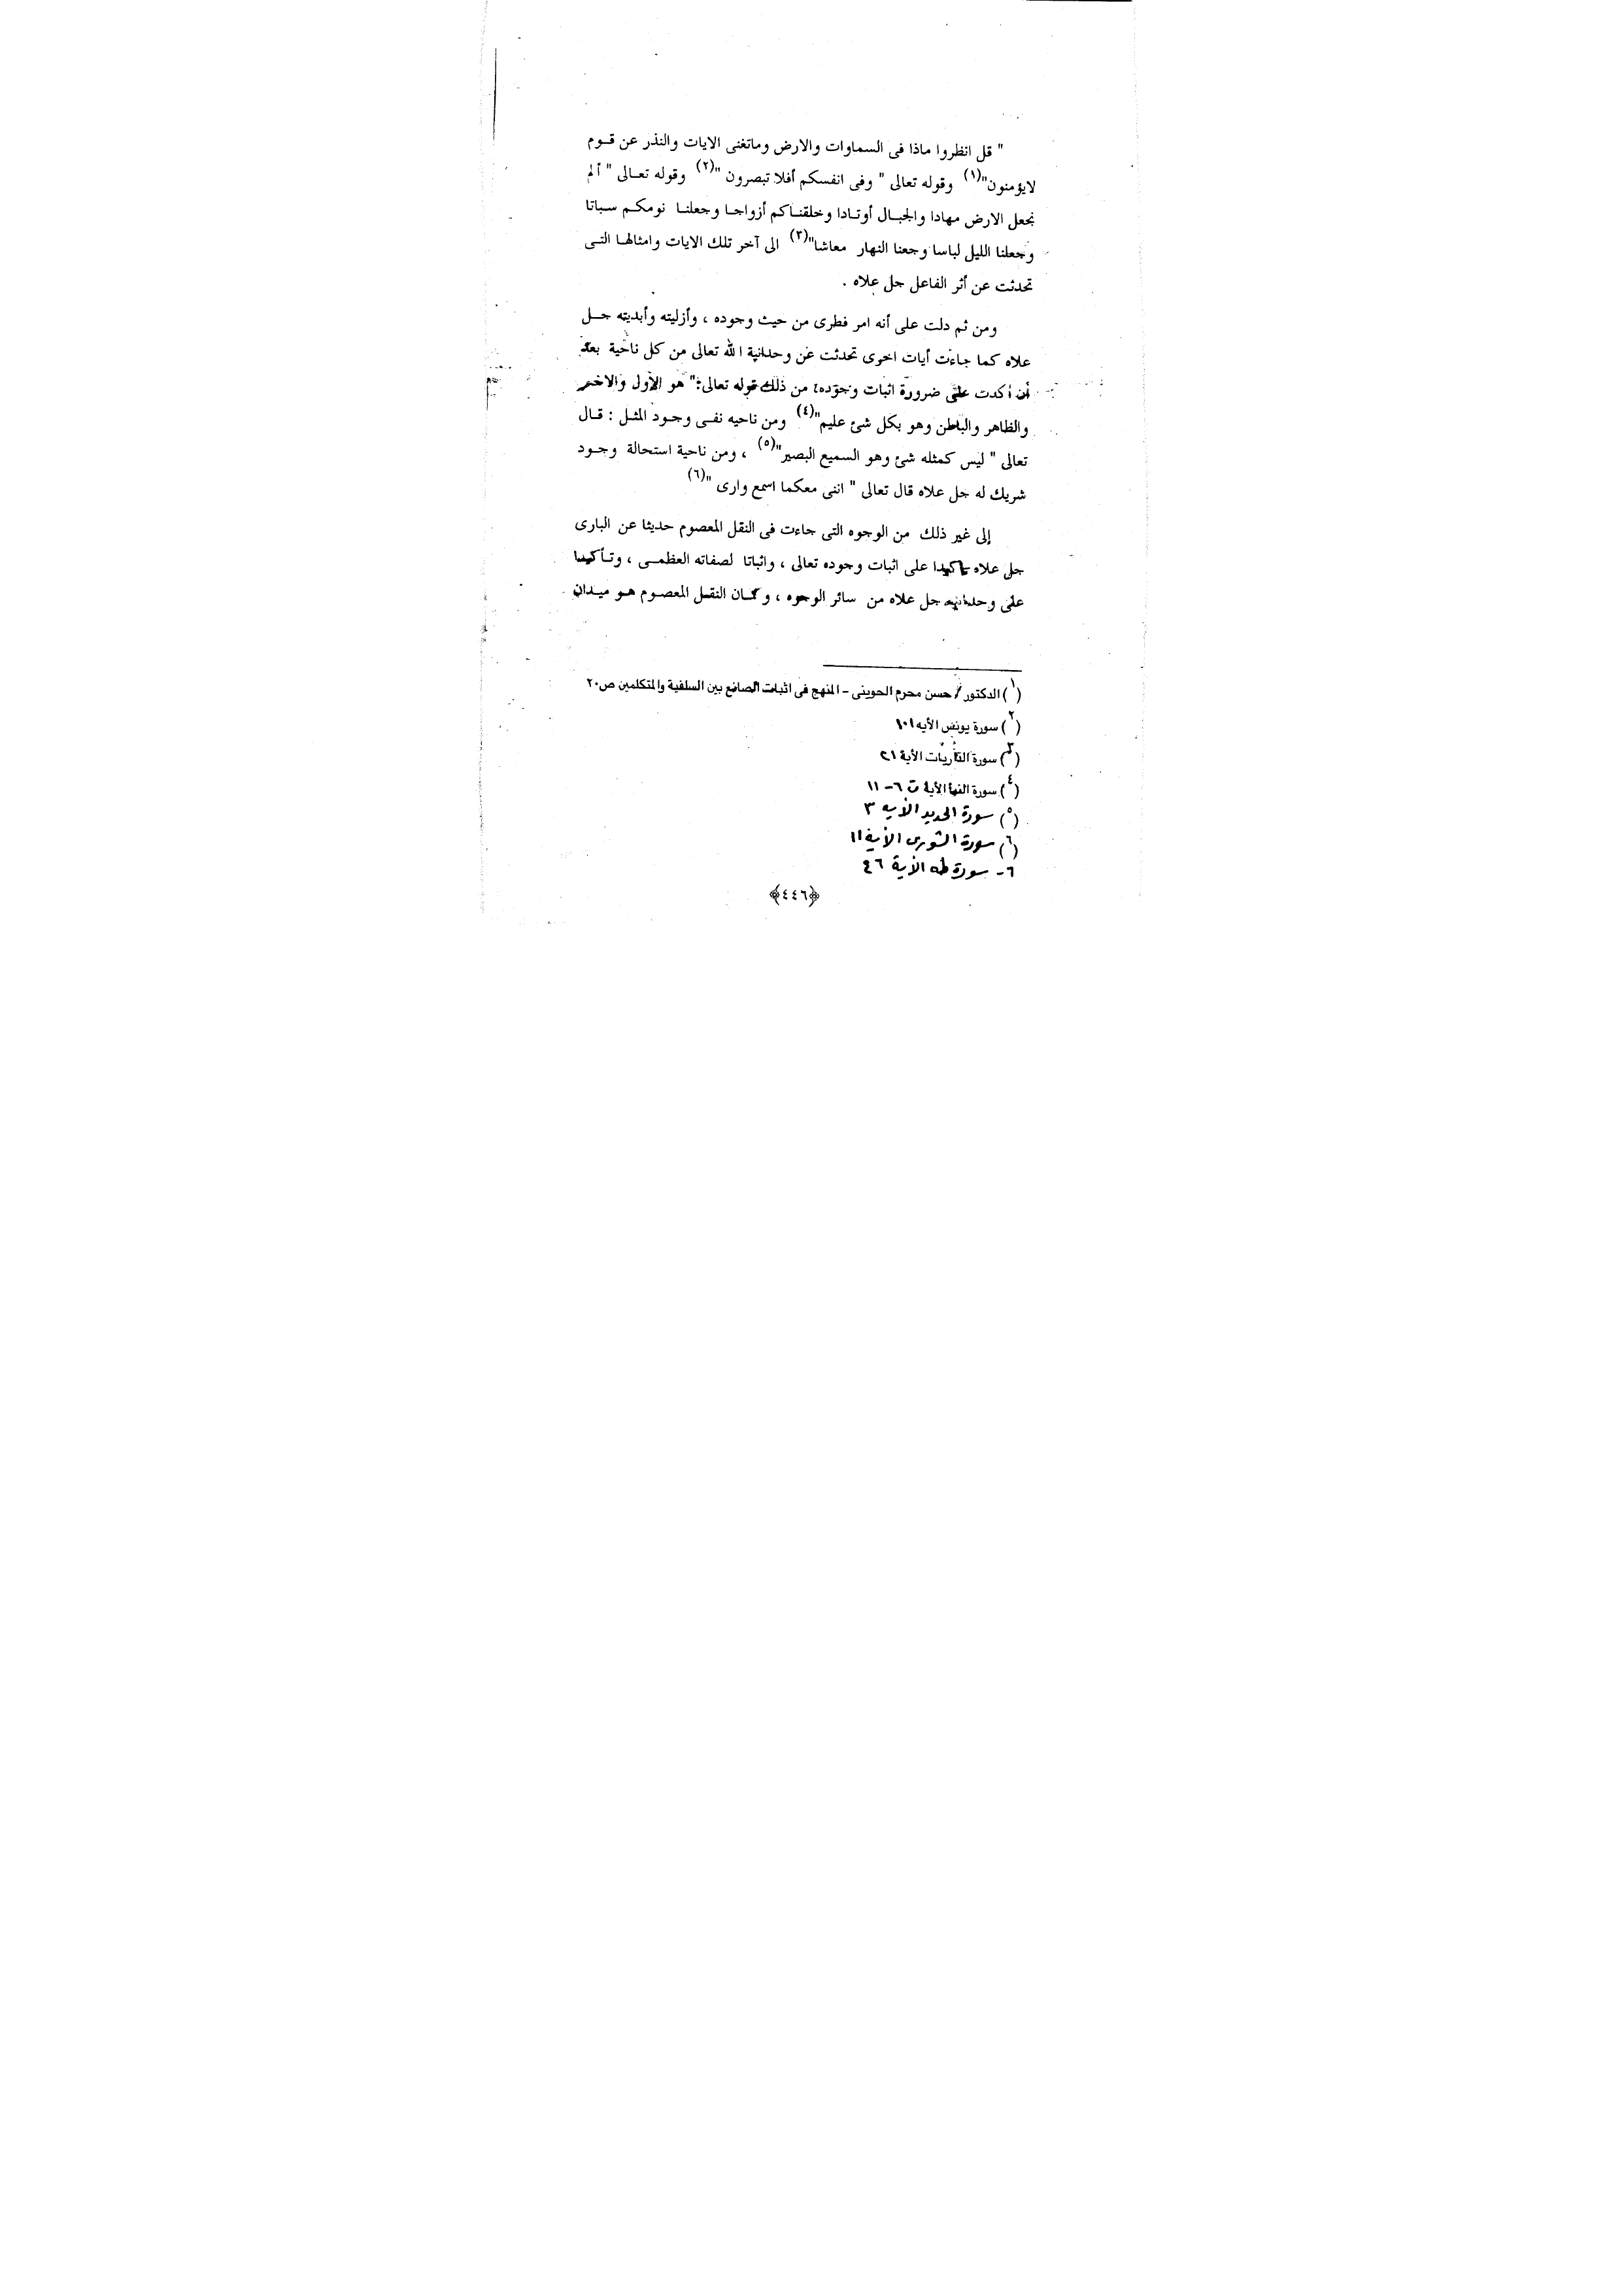 " قل انظروا ماذا فى السماوات والارض وماتغنى الايات والنذر عن قـوم
لايؤمنون"(١) وقوله تعالى " وفى انفسكم أفلا تبصرون "(٢) وقوله تعـالى " ألم
نجعل الارض مهادا والجبـال أوتـادا وخلقنـاكم أزواجـا وجعلنـا نومكـم سـباتا
وجعلنا الليل لباسا وجعنا النهار معاشا"(٣) الى آخر تلك الايات وامثالهـا التـى
تحدثت عن أثر الفاعل جل علاه .
ومن ثم دلت على أنه امر فطرى من حيث وجوده ، وأزليته وأبديته جـل
علاه كما جاءت أيات اخرى تحدثت عن وحدانية الله تعالى من كل ناحية بعد
أن أكدت على ضرورة اثبات وجوده، من ذلك قوله تعالى:" هو الأول والاخر
والظاهر والباطن وهو بكل شئ عليم"(٤) ومن ناحيه نفـى وجـود المثـل : قـال
تعالى " ليس كمثله شئ وهو السميع البصير"(٥) ، ومن ناحية استحالة وجـود
شريك له جل علاه قال تعالى " اننى معكما اسمع وارى "(٦)
إلى غير ذلك من الوجوه التى جاءت فى النقل المعصوم حديثا عن البارى
جل علاه تاكيدا على اثبات وجوده تعالى ، واثباتا لصفاته العظمـى ، وتـأكيدا
على وحدانيته جل علاه من سائر الوجوه ، وكـان النقـل المعصـوم هـو ميـدان
(١) الدكتور / حسن محرم الحوينى - المنهج فى اثبات الصانع بين السلفية والمتكلمين ص٢٠
(٢) سورة يونس الأيه ١٠١
(٣) سورة الذاريات الأية ٢١
(٤) سورة النبأ الأية ت ٦- ١١
(٥) سورة الحديد الأيه ٣
(٦) سورة الشورى الأية ١١
٦- سورة طه الأية ٤٦
﴿٤٤٦﴾